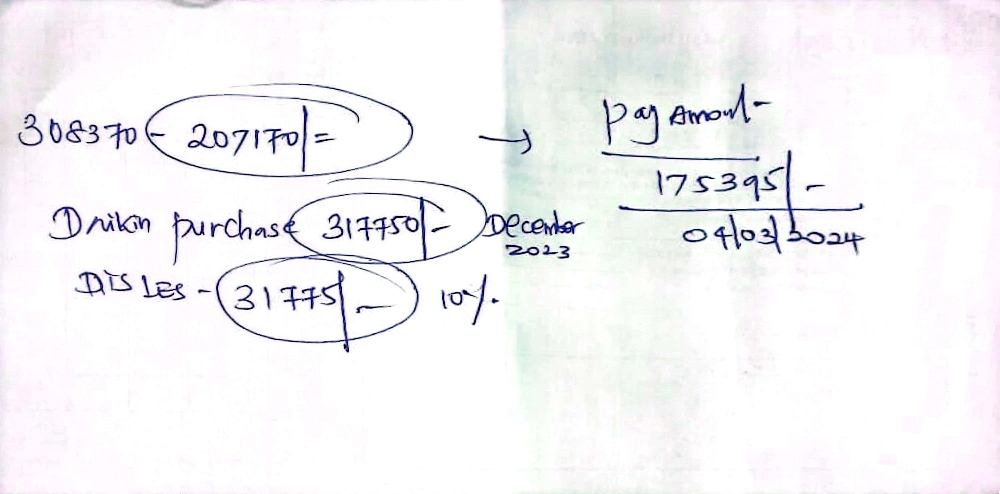 308370 - 207170/=
→ Pay Amount-
175395/-
04/03/2024
Dnikin purchase 317750/- December 2023
DIS LES - 31775/- 10%.